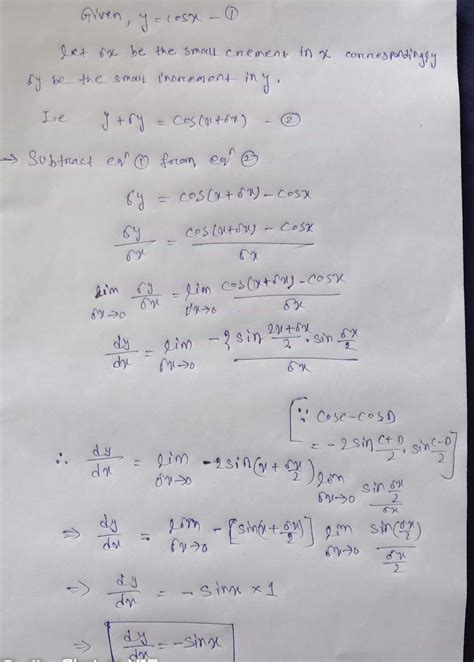 Given, y = cosx - ①
let δx be the small crement in x correspondingly
δy be the small increment in y.
I.e y+δy = cos(x+δx) - ②
→ Subtract eqⁿ ① from eqⁿ ②
δy = cos(x+δx) - cosx
δy/δx = cos(x+δx) - cosx / δx
lim δx→0 δy/δx = lim δx→0 cos(x+δx) - cosx / δx
dy/dx = lim δx→0 -2 sin 2x+δx/2 . sin δx/2 / δx
[∵ cosC - cosD
= -2 sin C+D/2 . sin C-D/2]
∴ dy/dx = lim δx→0 -2 sin(x + δx/2) lim δx→0 sin δx/2 / δx
⇒ dy/dx = lim δx→0 - [sin(x + δx/2)] lim δx→0 sin(δx/2) / δx/2
⇒ dy/dx = - sinx × 1
⇒ dy/dx = - sinx